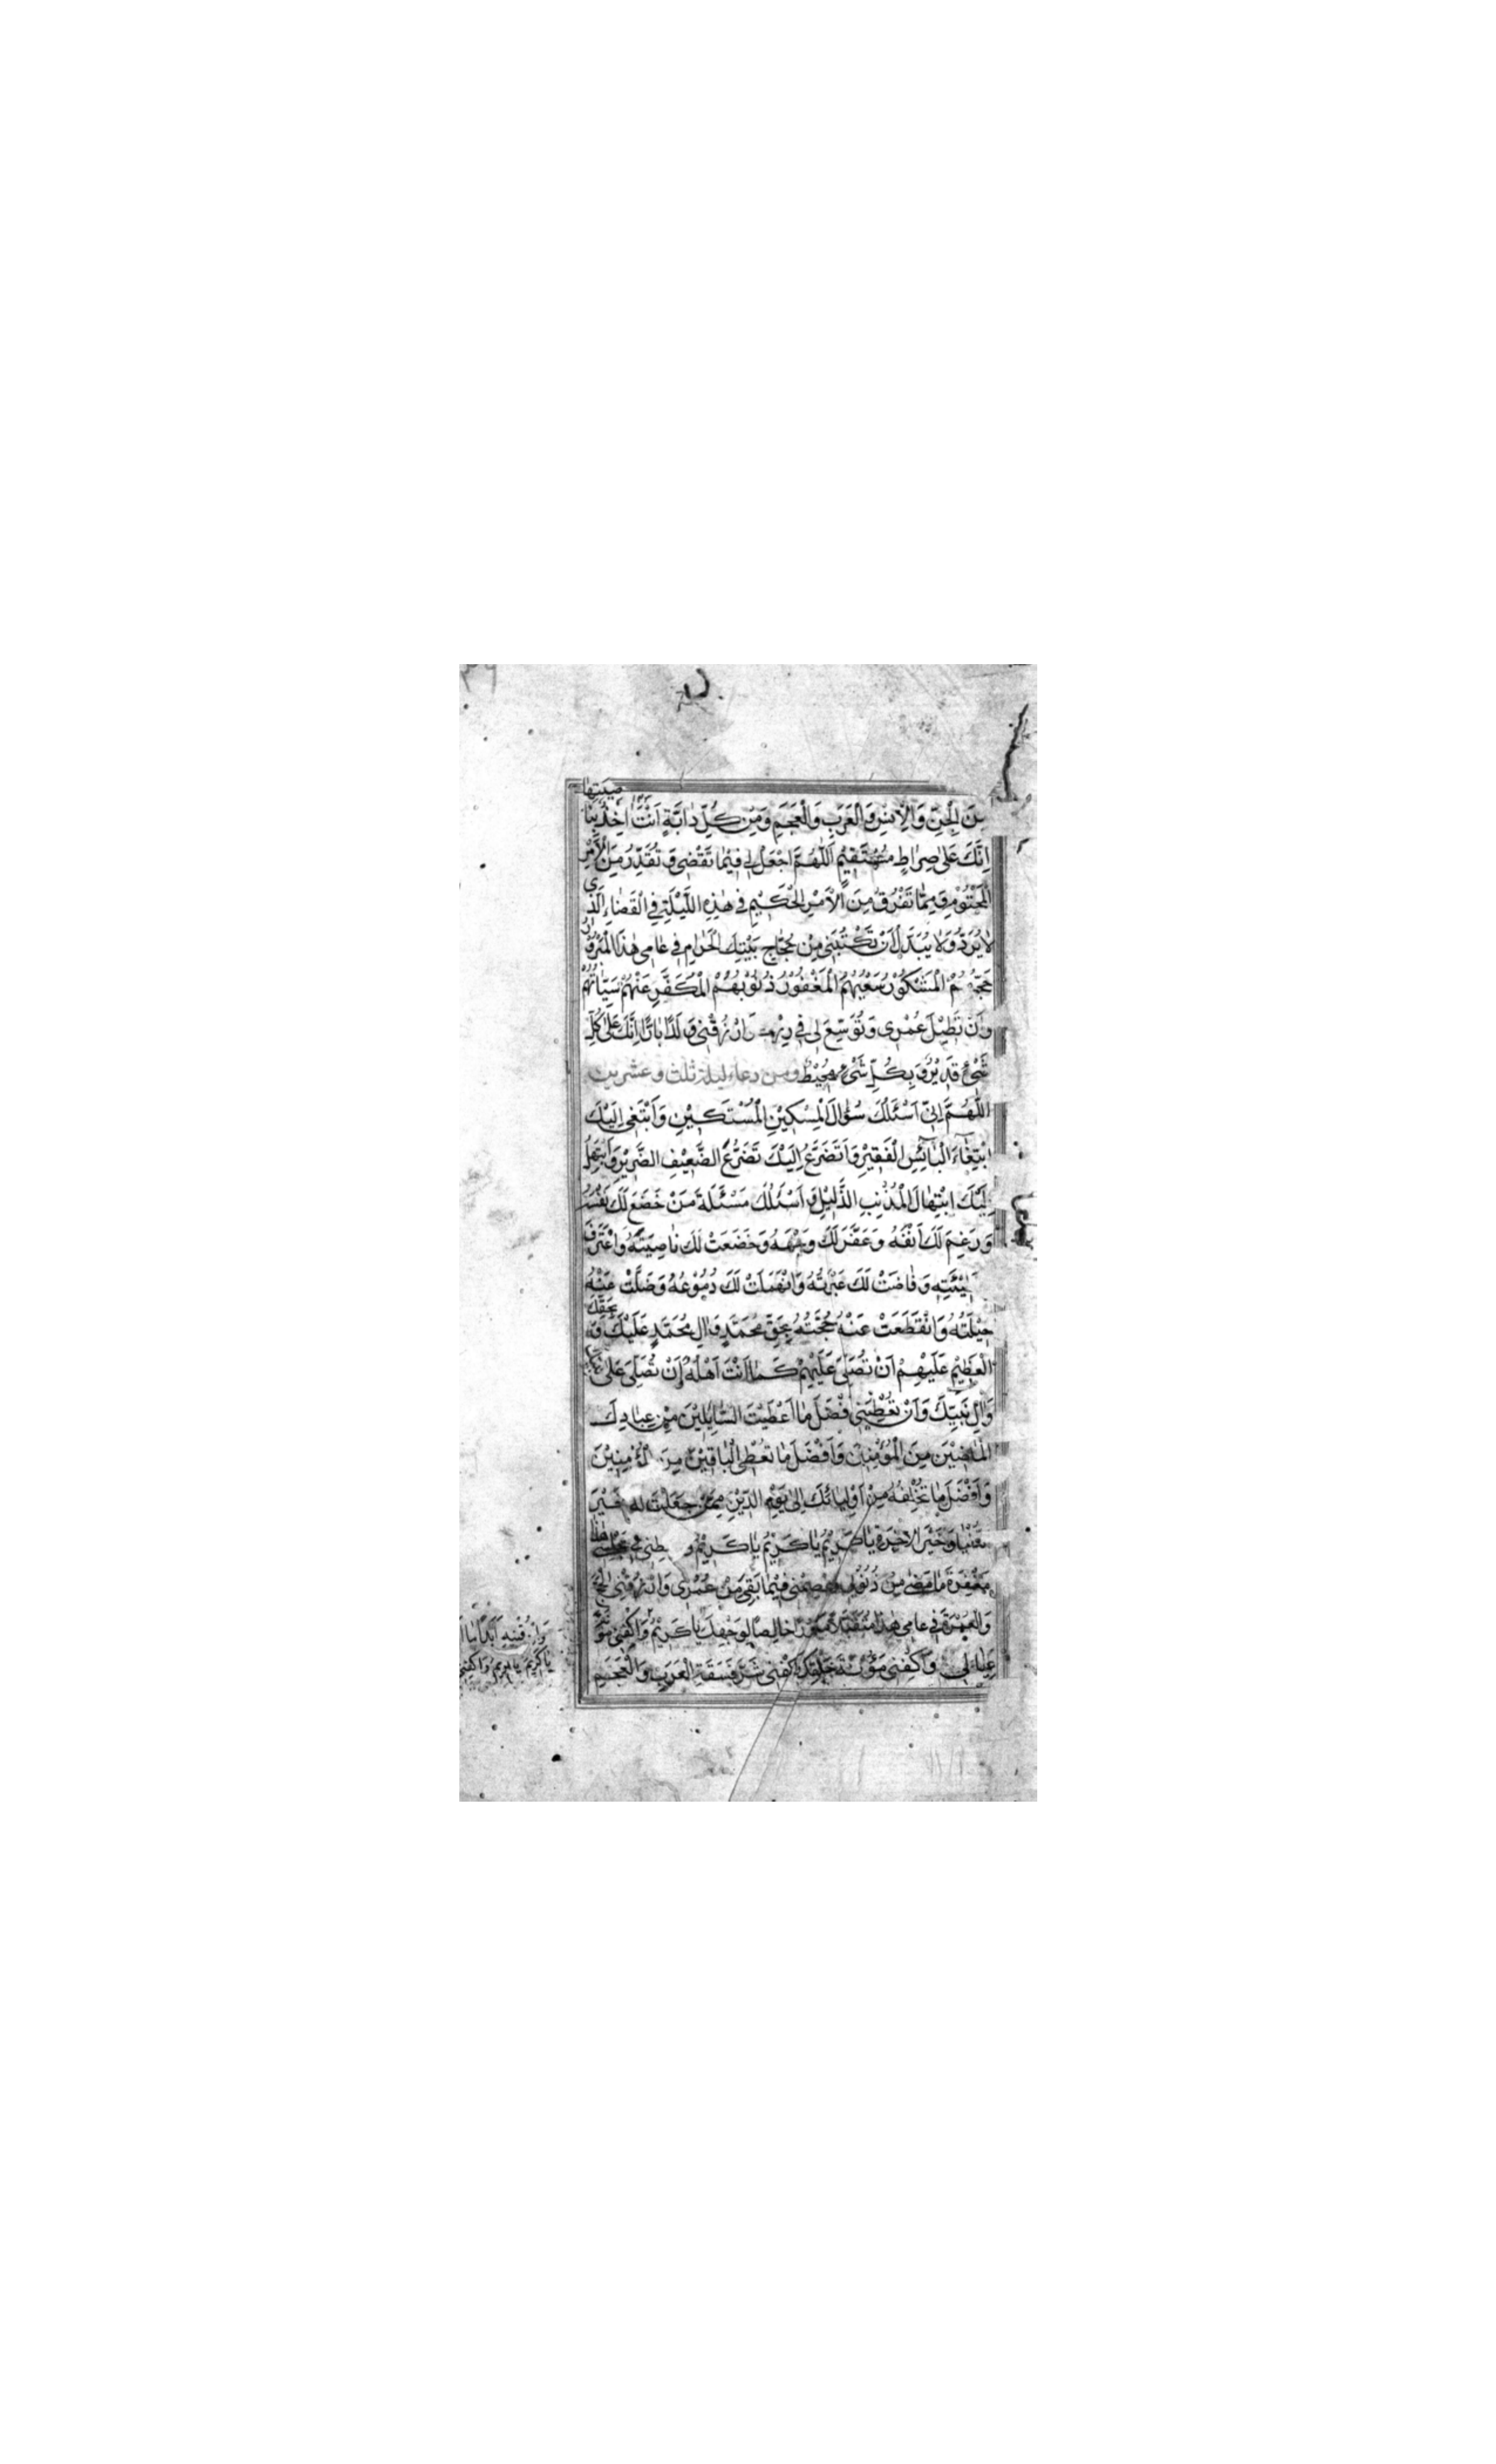 مِنَ الْجِنِّ وَالْاِنْسِ وَالْعَرَبِ وَالْعَجَمِ وَمِنْ كُلِّ دٰابَّةٍ اَنْتَ اٰخِذٌ بِنٰاصِيَتِهٰا
اِنَّكَ عَلىٰ صِرٰاطٍ مُسْتَقِيْمٍ اَللّٰهُمَّ اجْعَلْ لِيْ فِيْمٰا تَقْضِيْ وَتُقَدِّرُ مِنَ الْاَمْرِ
الْمَحْتُوْمِ وَفِيمٰا تَفْرُقُ مِنَ الْاَمْرِ الْحَكِيْمِ فِي هٰذِهِ اللَّيْلَةِ فِي الْقَضٰاءِ الَّذِي
لٰا يُرَدُّ وَلٰا يُبَدَّلُ اَنْ تَكْتُبَنِي مِنْ حُجّٰاجِ بَيْتِكَ الْحَرٰامِ فِي عٰامِي هٰذَا الْمَبْرُوْرِ
حَجُّهُمْ الْمَشْكُوْرِ سَعْيُهُمْ الْمَغْفُوْرِ ذُنُوْبُهُمْ الْمُكَفَّرِ عَنْهُمْ سَيِّاٰتُهُمْ
وَاَنْ تُطِيْلَ عُمْرِي وَتُوَسِّعَ لِي فِي رِزْقِي وَارْزُقْنِي وَلَدًا بٰارًّا اِنَّكَ عَلىٰ كُلِّ
شَيْءٍ قَدِيْرٌ وَبِكُلِّ شَيْءٍ مُحِيْطٌ ومن دعاء ليلة ثلث وعشرين
اَللّٰهُمَّ اِنِّي اَسْئَلُكَ سُؤٰالَ الْمِسْكِيْنِ الْمُسْتَكِيْنِ وَاَبْتَغِي اِلَيْكَ
ابْتِغٰاءَ الْبٰائِسِ الْفَقِيْرِ وَاَتَضَرَّعُ اِلَيْكَ تَضَرُّعَ الضَّعِيْفِ الضَّرِيْرِ وَاَبْتَهِلُ
اِلَيْكَ ابْتِهٰالَ الْمُذْنِبِ الذَّلِيْلِ وَاَسْئَلُكَ مَسْئَلَةَ مَنْ خَضَعَ لَكَ نَفْسُهُ
وَرَغِمَ لَكَ اَنْفُهُ وَعَفَّرَ لَكَ وَجْهَهُ وَخَضَعَتْ لَكَ نٰاصِيَتُهُ وَاعْتَرَفَ
بِخَطِيْئَتِهِ وَفٰاضَتْ لَكَ عَبْرَتُهُ وَانْهَمَلَتْ لَكَ دُمُوْعُهُ وَضَلَّتْ عَنْهُ
حِيْلَتُهُ وَانْقَطَعَتْ عَنْهُ حُجَّتُهُ بِحَقِّ مُحَمَّدٍ وَاٰلِ مُحَمَّدٍ عَلَيْكَ وَبِحَقِّكَ
الْعَظِيْمِ عَلَيْهِمْ اَنْ تُصَلِّيَ عَلَيْهِمْ كَمٰا اَنْتَ اَهْلُهُ وَاَنْ تُصَلِّيَ عَلىٰ نَبِيِّكَ
وَاٰلِ نَبِيِّكَ وَاَنْ تُعْطِيَنِي اَفْضَلَ مٰا اَعْطَيْتَ السّٰائِلِيْنَ مِنْ عِبٰادِكَ
الْمٰاضِيْنَ مِنَ الْمُؤْمِنِيْنَ وَاَفْضَلَ مٰا تُعْطِي الْبٰاقِيْنَ مِنَ الْمُؤْمِنِيْنَ
وَاَفْضَلَ مٰا تَخْلُقُهُ مِنْ اَوْلِيٰائِكَ اِلىٰ يَوْمِ الدِّيْنِ مِمَّنْ جَعَلْتَ لَهُ خَيْرَ
الدُّنْيٰا وَخَيْرَ الْاٰخِرَةِ يٰا كَرِيْمُ يٰا كَرِيْمُ يٰا كَرِيْمُ وَاَعْطِنِي فِي مَجْلِسِي هٰذٰا
مَغْفِرَةَ مٰا مَضىٰ مِنْ ذُنُوْبِي وَاعْصِمْنِي فِيْمٰا بَقِيَ مِنْ عُمْرِي وَارْزُقْنِي الْحَجَّ
وَالْعُمْرَةَ فِي عٰامِي هٰذٰا مُتَقَبَّلًا مَبْرُوْرًا خٰالِصًا لِوَجْهِكَ يٰا كَرِيْمُ وَاكْفِنِي مَؤُنَةَ
عِيٰالِي وَاكْفِنِي مَؤُنَةَ خَلْقِكَ وَاكْفِنِي شَرَّ فَسَقَةِ الْعَرَبِ وَالْعَجَمِ
وَارْزُقْنِيهِ اَبَدًا مٰا
يٰا كَرِيمُ يٰا كَرِيمُ وَاكْفِنِي